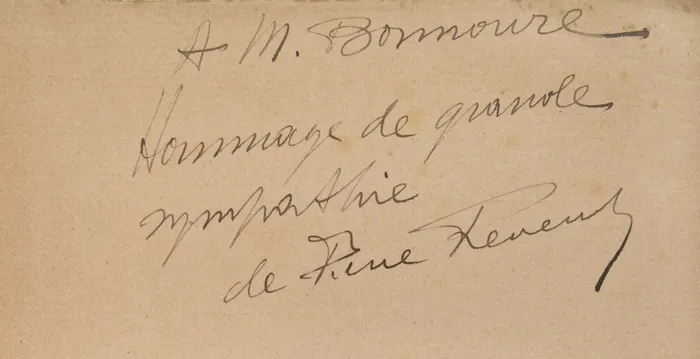 A M. Bounoure
Hommage de grande
sympathie
de Pierre Reverdy